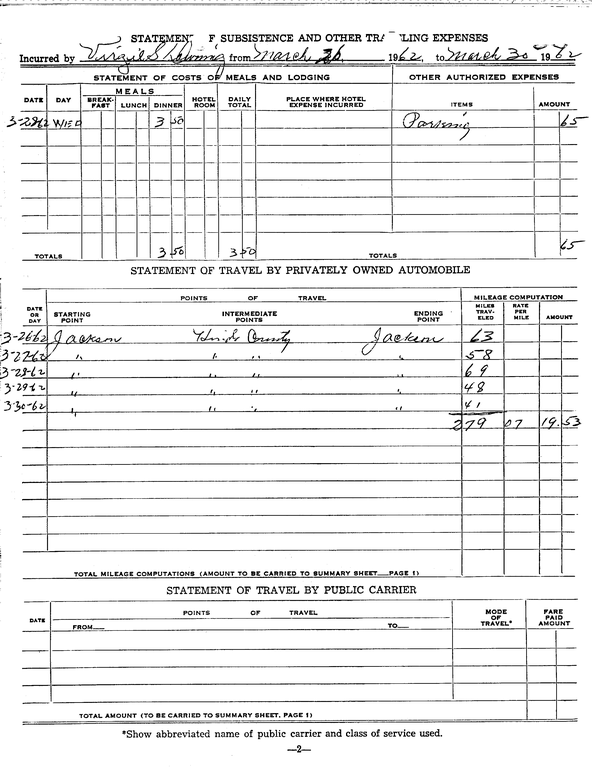 STATEMENT F SUBSISTENCE AND OTHER TRA LING EXPENSES
Incurred by Virgil S Downing from March 26 1962, to March 30 1962
STATEMENT OF COSTS OF MEALS AND LODGING OTHER AUTHORIZED EXPENSES
DATE DAY MEALS BREAK-FAST LUNCH DINNER HOTEL ROOM DAILY TOTAL PLACE WHERE HOTEL EXPENSE INCURRED ITEMS AMOUNT
3-28-62 WED 3 50 Parking 65
TOTALS 3 50 3 50 TOTALS 65
STATEMENT OF TRAVEL BY PRIVATELY OWNED AUTOMOBILE
POINTS OF TRAVEL MILEAGE COMPUTATION
DATE OR DAY STARTING POINT INTERMEDIATE POINTS ENDING POINT MILES TRAV-ELED RATE PER MILE AMOUNT
3-26-62 Jackson Hinds County Jackson 63
3-27-62 " " " " 58
3-28-62 " " " " 69
3-29-62 " " " " 48
3-30-62 " " " " 41
279 07 19.53
TOTAL MILEAGE COMPUTATIONS (AMOUNT TO BE CARRIED TO SUMMARY SHEET__PAGE 1)
STATEMENT OF TRAVEL BY PUBLIC CARRIER
DATE POINTS OF TRAVEL MODE OF TRAVEL* FARE PAID AMOUNT
FROM__ TO__
TOTAL AMOUNT (TO BE CARRIED TO SUMMARY SHEET, PAGE 1)
*Show abbreviated name of public carrier and class of service used.
—2—